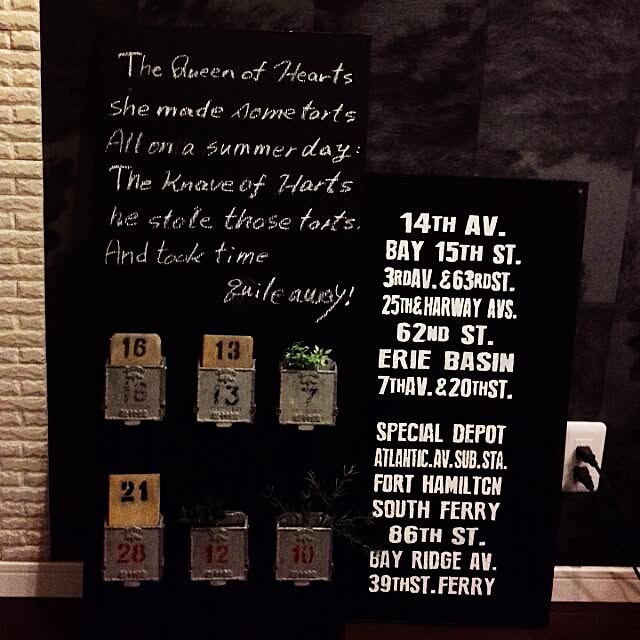 The Queen of Hearts
she made some tarts
All on a summer day:
The Knave of Harts
he stole those tarts.
And took time
quile away!
16
16
13
13
7
21
28
12
10
14TH AV.
BAY 15TH ST.
3RDAV.&63RDST.
25TH&HARWAY AVS.
62ND ST.
ERIE BASIN
7THAV.&20THST.
SPECIAL DEPOT
ATLANTIC.AV.SUB.STA.
FORT HAMILTON
SOUTH FERRY
86TH ST.
BAY RIDGE AV.
39THST.FERRY